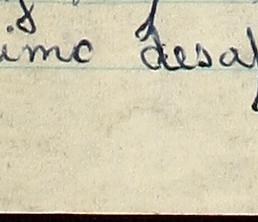 imo desa